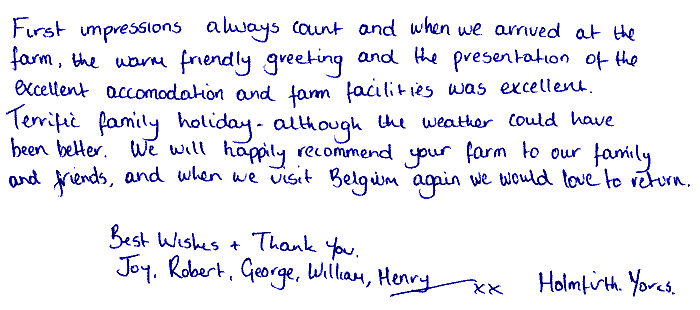 First impressions always count and when we arrived at the
farm, the warm friendly greeting and the presentation of the
excellent accomodation and farm facilities was excellent.
Terrific family holiday - although the weather could have
been better. We will happily recommend your farm to our family
and friends, and when we visit Belgium again we would love to return.
Best Wishes + Thank You.
Joy, Robert, George, William, Henry xx Holmfirth. Yorks.